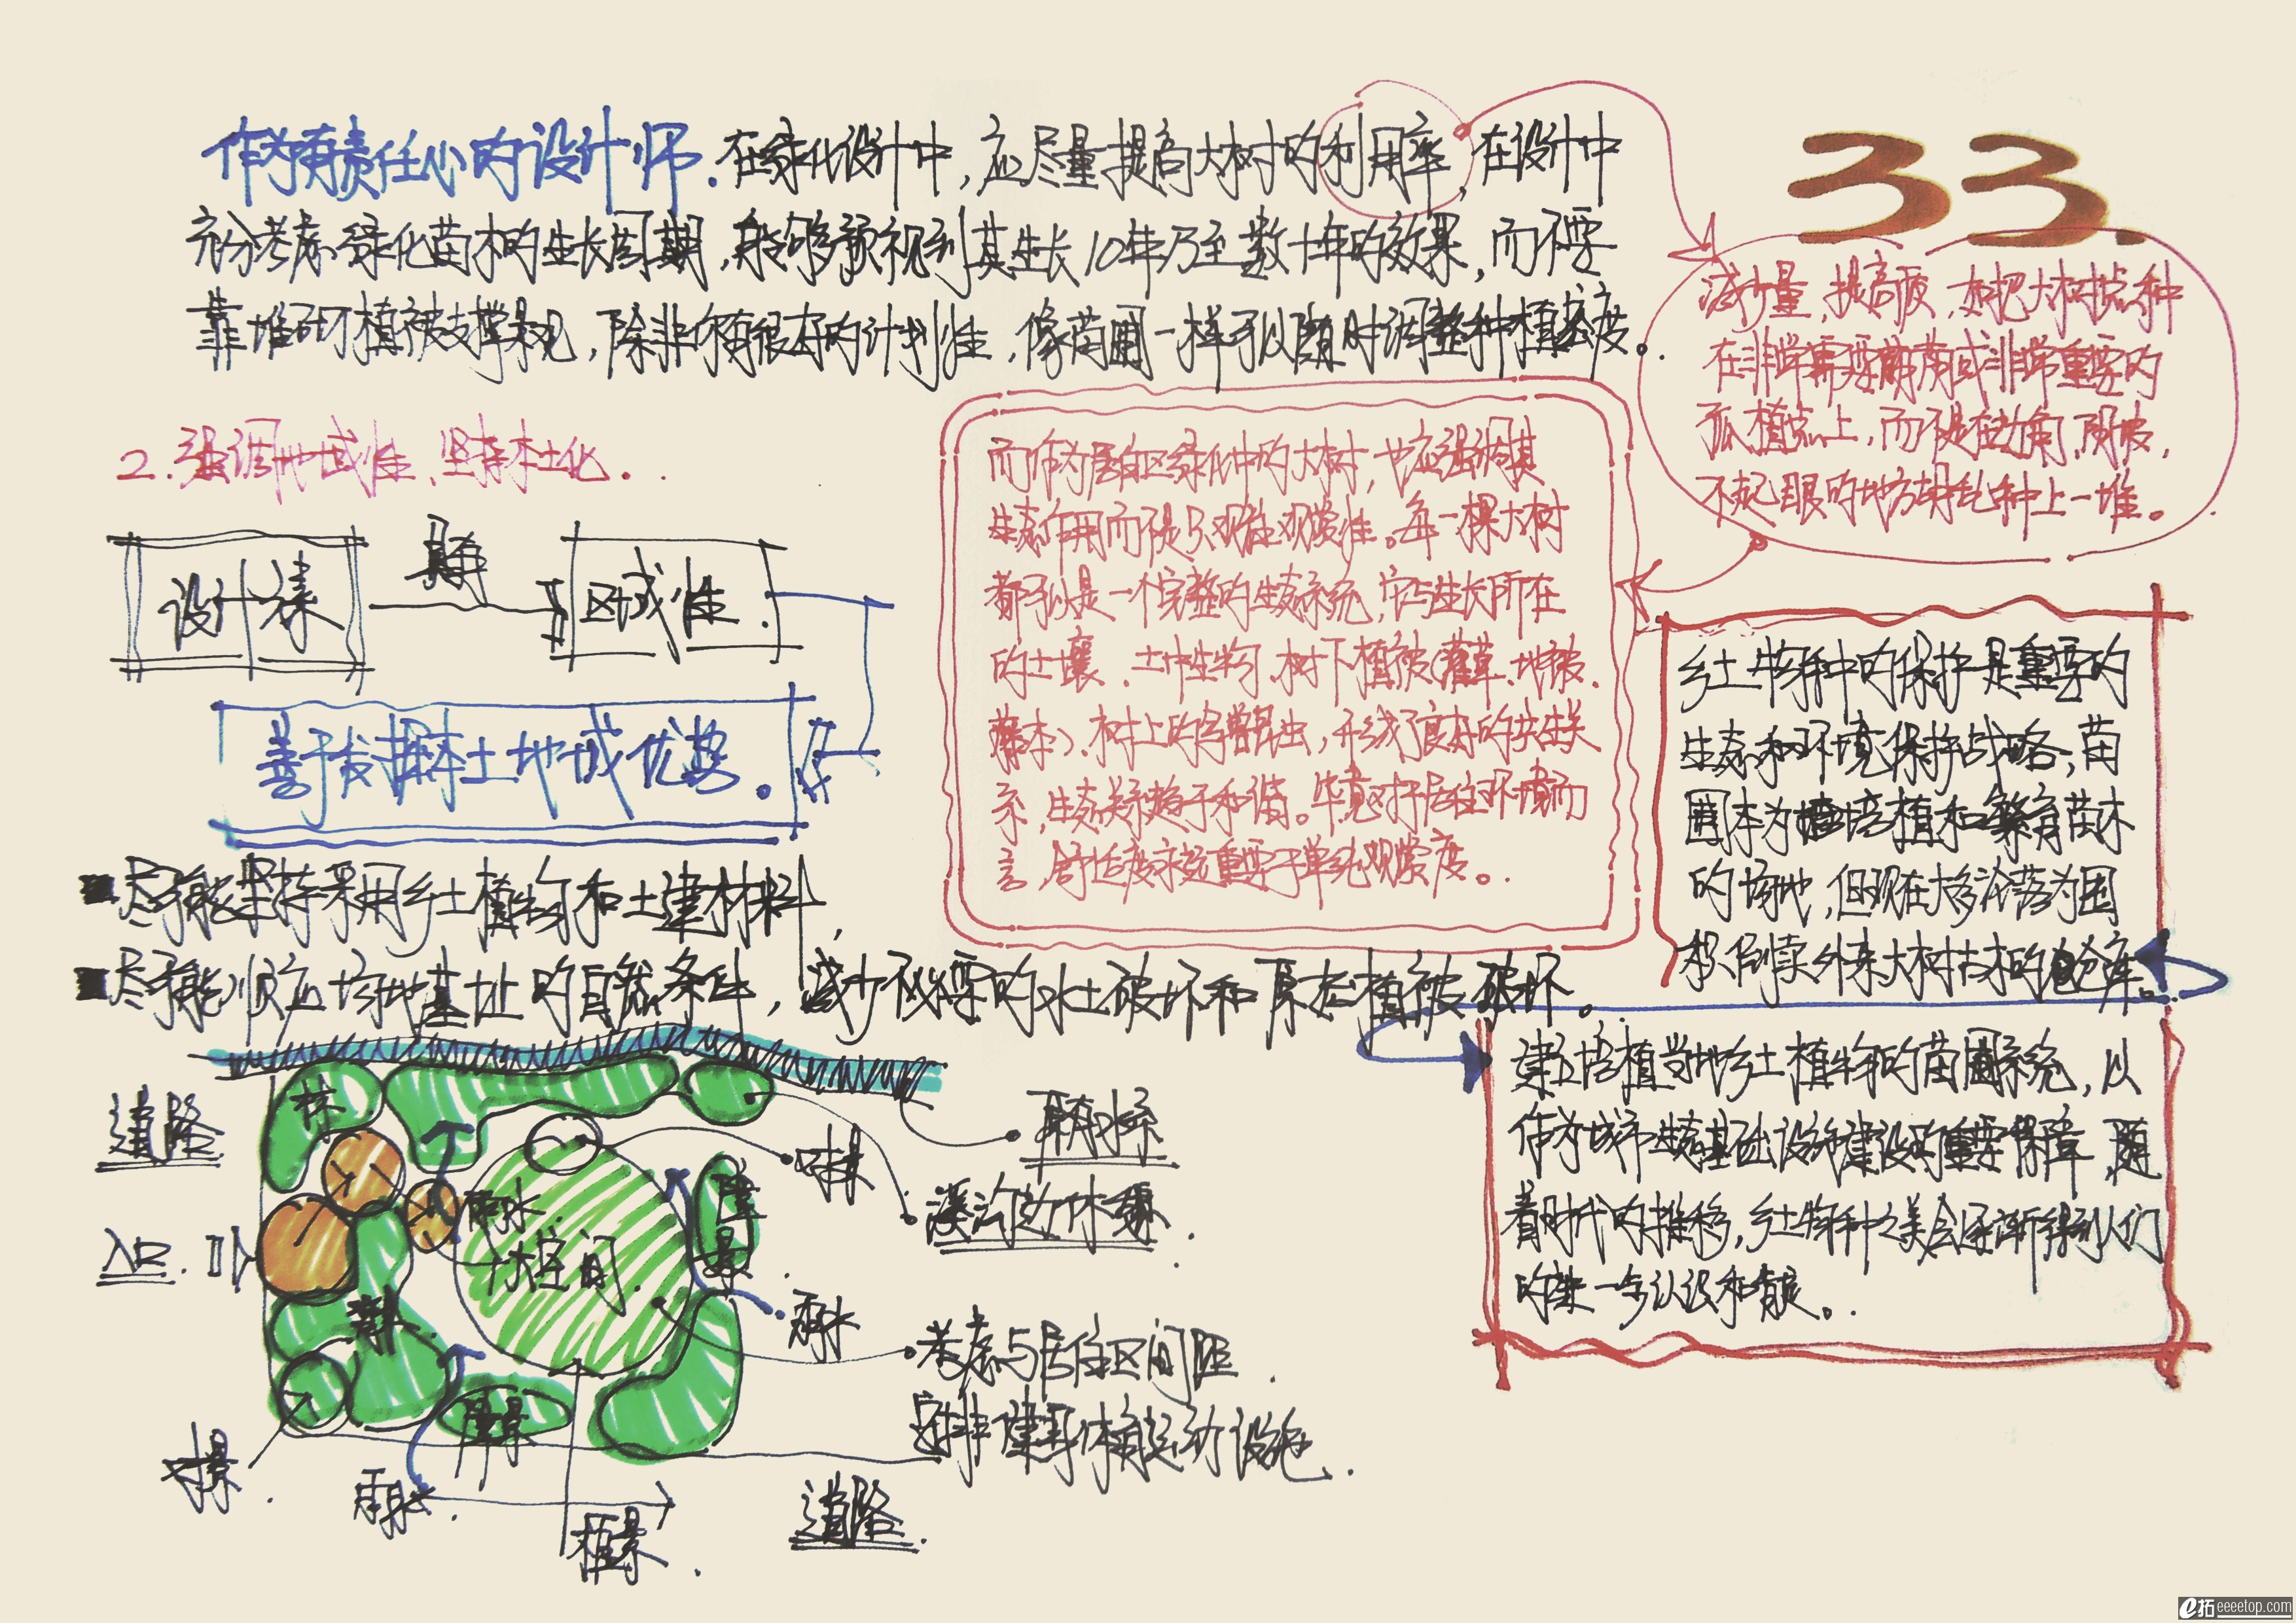 33.
作为有责任心的设计师.在绿化设计中,应尽量提高大树的利用率,在设计中
充分考虑绿化苗木的生长周期,能够预视到其生长10年乃至数十年的效果,而不要
靠堆砌植被支撑景观,除非你有很好的计划性,像苗圃一样可以随时调整种植密度。
减少量,提高质,如把大树点种
在非常需要 或非常重要的
孤植点上,而不是在边角,
不起眼的地方胡乱种上一堆。
2.强调地域性、坚持本土化.
设计 区域性.
善于发掘本土地域优势。
而作为居住区绿化中的大树,也应强调其
生态作用而不是只观注观赏性。每一棵大树
都可以是一个完整的生态系统,它与生长所在
的土壤、土中生物、树下植被(灌草、地被、
藤本)、树上的鸟兽昆虫,形成了良好的共生关
系,生态关系趋于和谐。毕竟对于居住环境而
言,舒适度永远重要于单纯观赏度。
乡土物种的保护是重要的
生态和环境保护战略,苗
圃本为培植和繁育苗木
的场地,但现在大多沦落为囤
积倒卖外来大树古木的仓库。
■尽可能坚持采用乡土植物和土建材料
■尽可能顺应场地基址的自然条件,减少不必要的水土破坏和原态植被破坏.
建立培植当地乡土植物的苗圃系统,以
作为城市生态基础设施建设的重要保障,随
着时代的推移,乡土物种之美会逐渐得到人们
的进一步认识和肯定。
道路
林
对景
原有水系
入口.
雨水
大空间.
障景
雨水
考虑与居住区间距.
安排健身体育运动设施.
对景.
雨水.
框景.
道路.
e拓 eeeetop.com